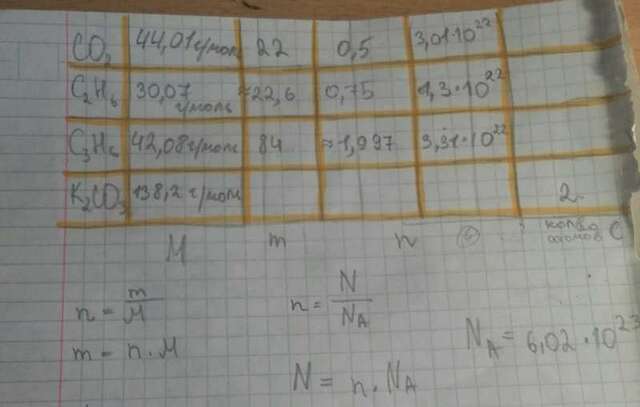 CO₂ 44,01 г/моль 22 0,5 3,01·10²²
C₂H₆ 30,07 г/моль ≈22,6 0,75 4,3·10²²
C₃H₆ 42,08 г/моль 84 ≈1,997 3,31·10²²
K₂CO₃ 138,2 г/моль 2
M m n кол-во атомов C
n = m/M n = N/N_A
m = n·M N_A = 6,02·10²³
N = n·N_A